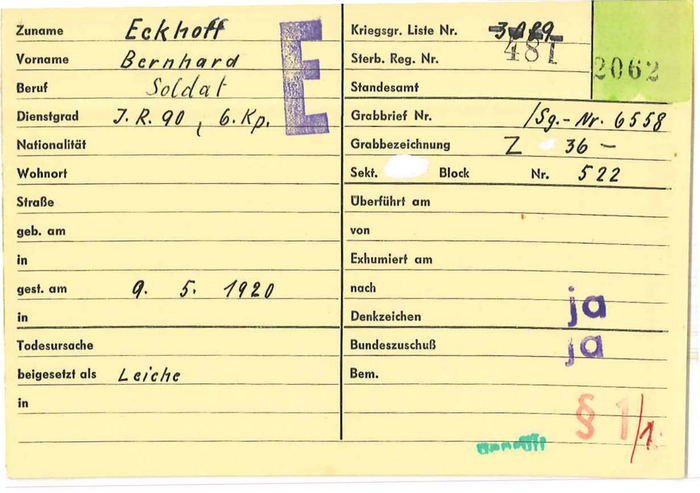 Zuname Eckhoff
Vorname Bernhard
Beruf Soldat
Dienstgrad J.R. 90, 6. Kp.
Nationalität
Wohnort
Straße
geb. am
in
gest. am 9. 5. 1920
in
Todesursache
beigesetzt als Leiche
in
E
Kriegsgr. Liste Nr.
481
Sterb. Reg. Nr.
2062
Standesamt
Grabbrief Nr. /Sg.-Nr. 6558
Grabbezeichnung Z 36 -
Sekt. Block Nr. 522
Überführt am
von
Exhumiert am
nach
Denkzeichen ja
Bundeszuschuß ja
Bem.
§ 1/1